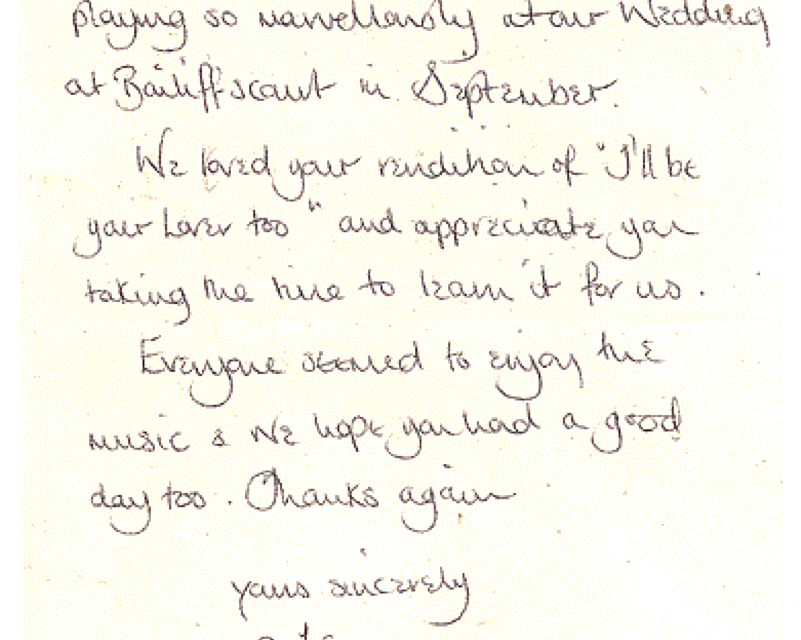 playing so marvellously at our Wedding
at Bailiffscourt in September.
We loved your rendition of "I'll be
your Lover too" and appreciate you
taking the time to learn it for us.
Everyone seemed to enjoy the
music & we hope you had a good
day too. Thanks again
yours sincerely